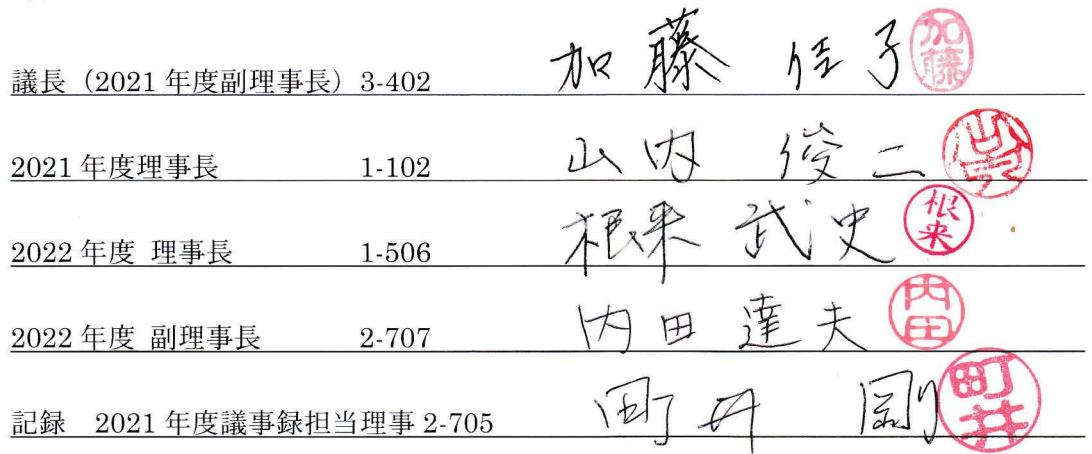 議長（2021 年度副理事長）3-402 加藤 佳子 加藤
2021 年度理事長 1-102 山内 俊二
2022 年度 理事長 1-506 根来 武史 根来
2022 年度 副理事長 2-707 内田 達夫 内田
記録 2021 年度議事録担当理事 2-705 町井 剛 町井